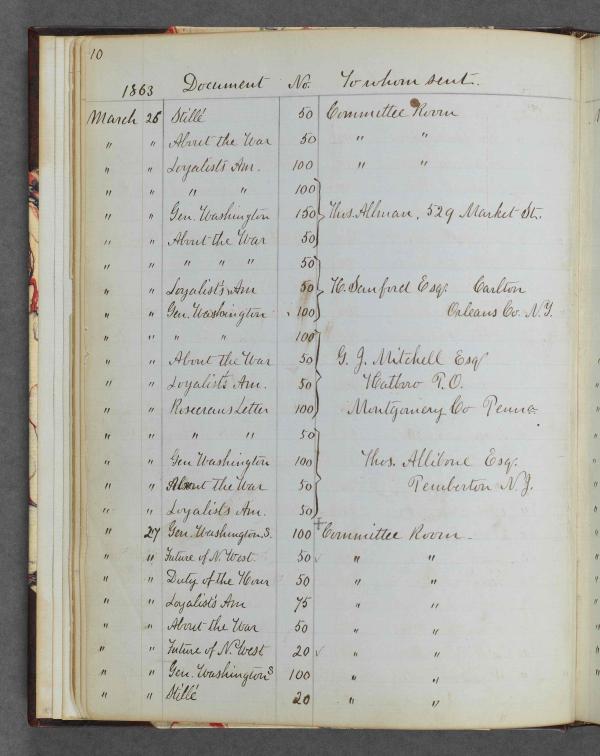 10
1863 Document No. To whom sent.
March 26 Stillé 50 Committee Room
" " About the War 50 " "
" " Loyalists Am. 100 " "
" " " " 100
" " Gen. Washington 150 Thos. Allman, 529 Market St.
" " About the War 50
" " " " " 50
" " Loyalist's Am 50 H. Sanford Esq. Carlton
" " Gen. Washington 100 Orleans Co. N.Y.
" " " " 100
" " About the War 50 G. J. Mitchell Esq
" " Loyalists Am. 50 Hatboro P.O.
" " Rosecrans Letter 100 Montgomery Co Penna.
" " " " 50
" " Gen Washington 100 Thos. Allibone Esq.
" " About the War 50 Pemberton N.J.
" " Loyalists Am. 50
" 27 Gen. Washington S. 100 Committee Room
" " Future of N. West. 50 " "
" " Duty of the Hour 50 " "
" " Loyalist's Am 75 " "
" " About the War 50 " "
" " Future of N. West 20 " "
" " Gen. Washington S 100 " "
" " Stillé 20 " "